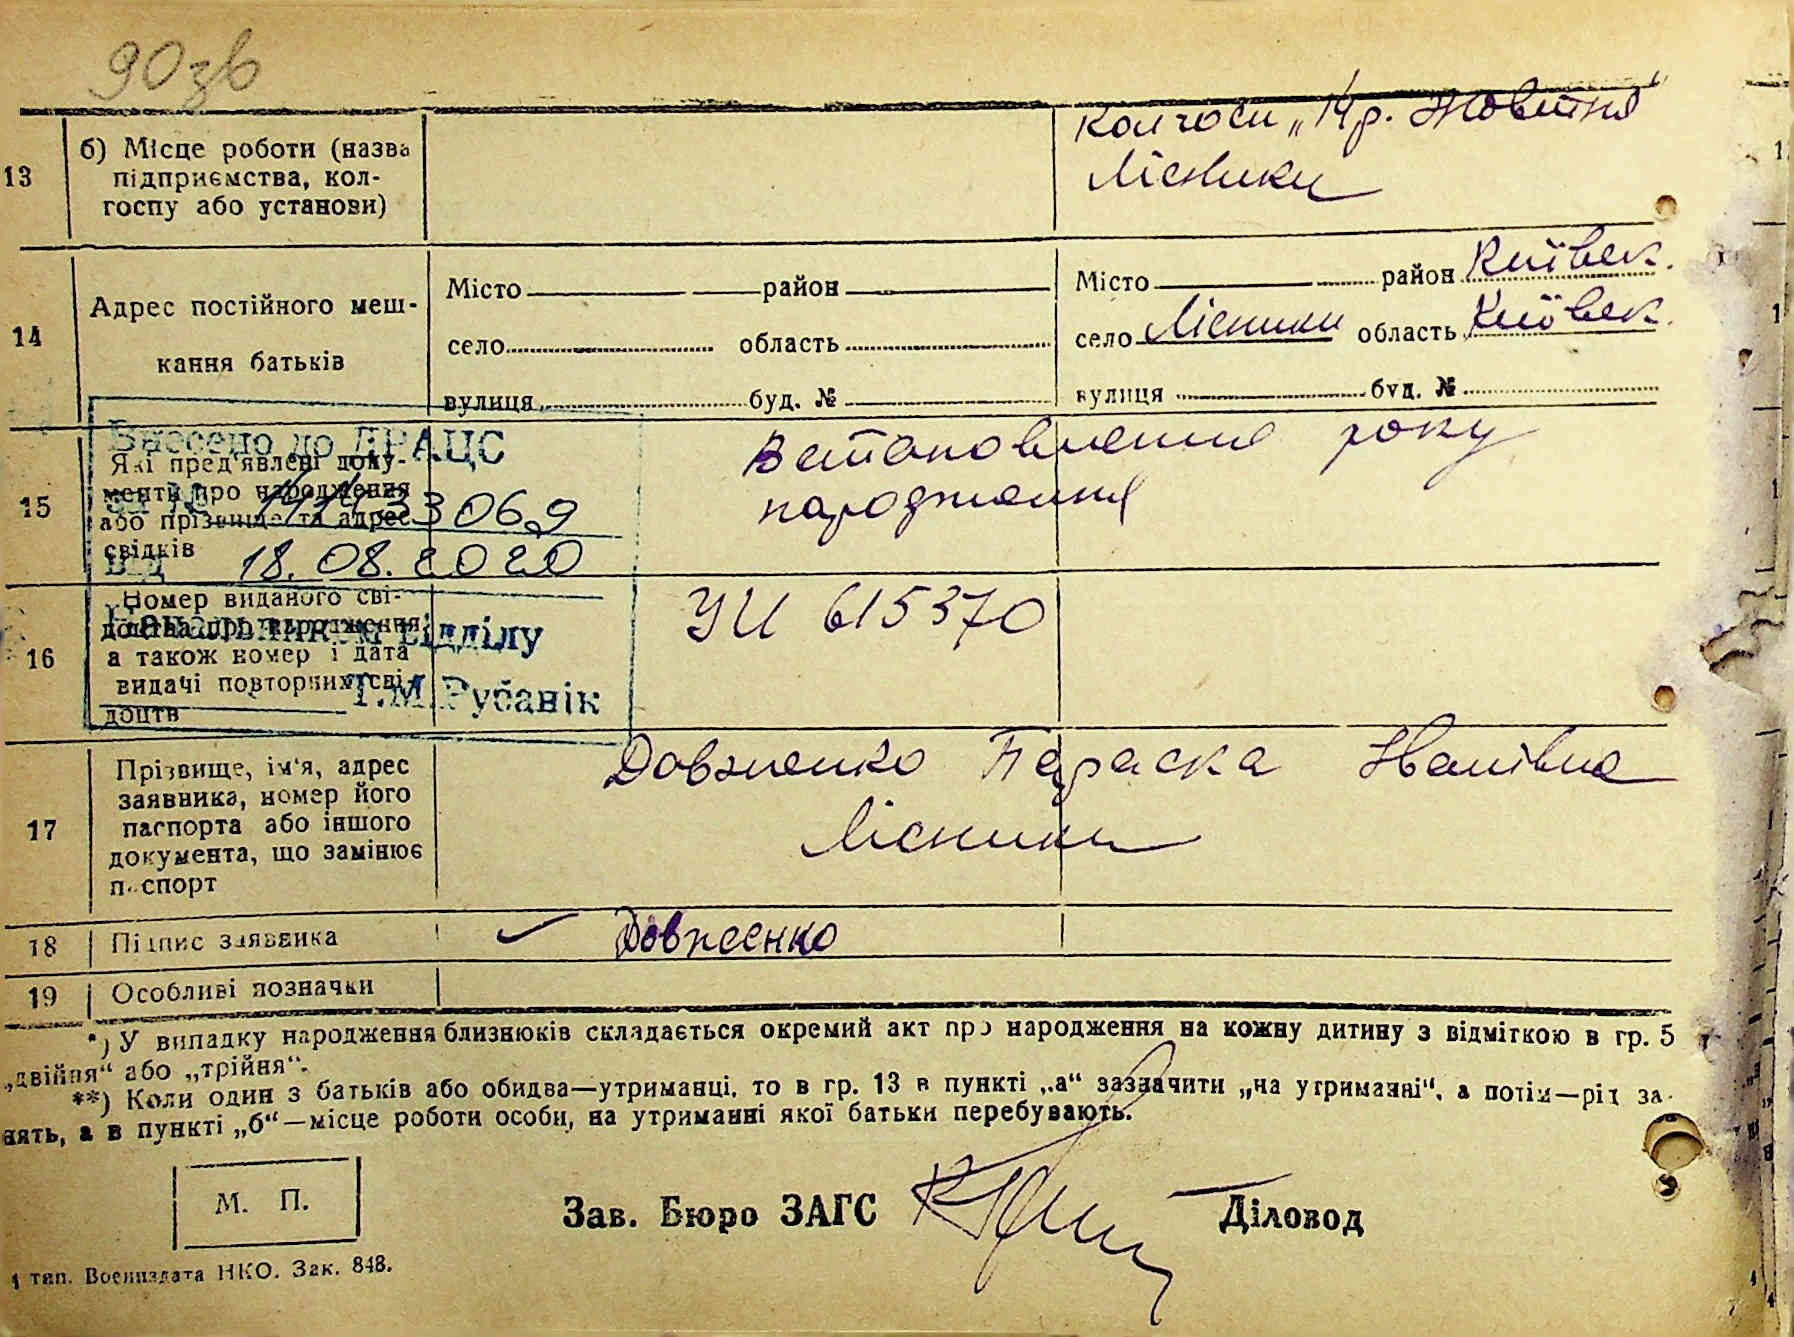 90зв
13
б) Місце роботи (назва
підприємства, кол-
госпу або установи)
Колгосп „14 р. Жовтня"
Лісники
14
Адрес постійного меш-
кання батьків
Місто район
село область
вулиця буд. №
Місто район Київськ.
село Лісники область Київськ.
вулиця буд. №
Внесено до ДРАЦС
за № 069
від 18.08.2020
Начальник відділу
Т.М.Рубанік
15
Які пред'явлені доку-
менти про народження
або прізвище та адрес
свідків
Встановлення року
народження
16
Номер виданого сві-
доцтва про народження,
а також номер і дата
видачі повторних сві-
доцтв
УИ 615370
17
Прізвище, ім'я, адрес
заявника, номер його
паспорта або іншого
документа, що замінює
паспорт
Довженко Параска Іванівна
Лісники
18 Підпис заявника
Довженко
19 Особливі позначки
*) У випадку народження близнюків складається окремий акт про народження на кожну дитину з відміткою в гр. 5
„двійня“ або „трійня“.
**) Коли один з батьків або обидва—утриманці, то в гр. 13 в пункті „а“ зазначити „на утриманні“, а потім—рід за-
нять, а в пункті „б“—місце роботи особи, на утриманні якої батьки перебувають.
М. П.
Зав. Бюро ЗАГС
Діловод
1 тип. Воениздата НКО. Зак. 848.